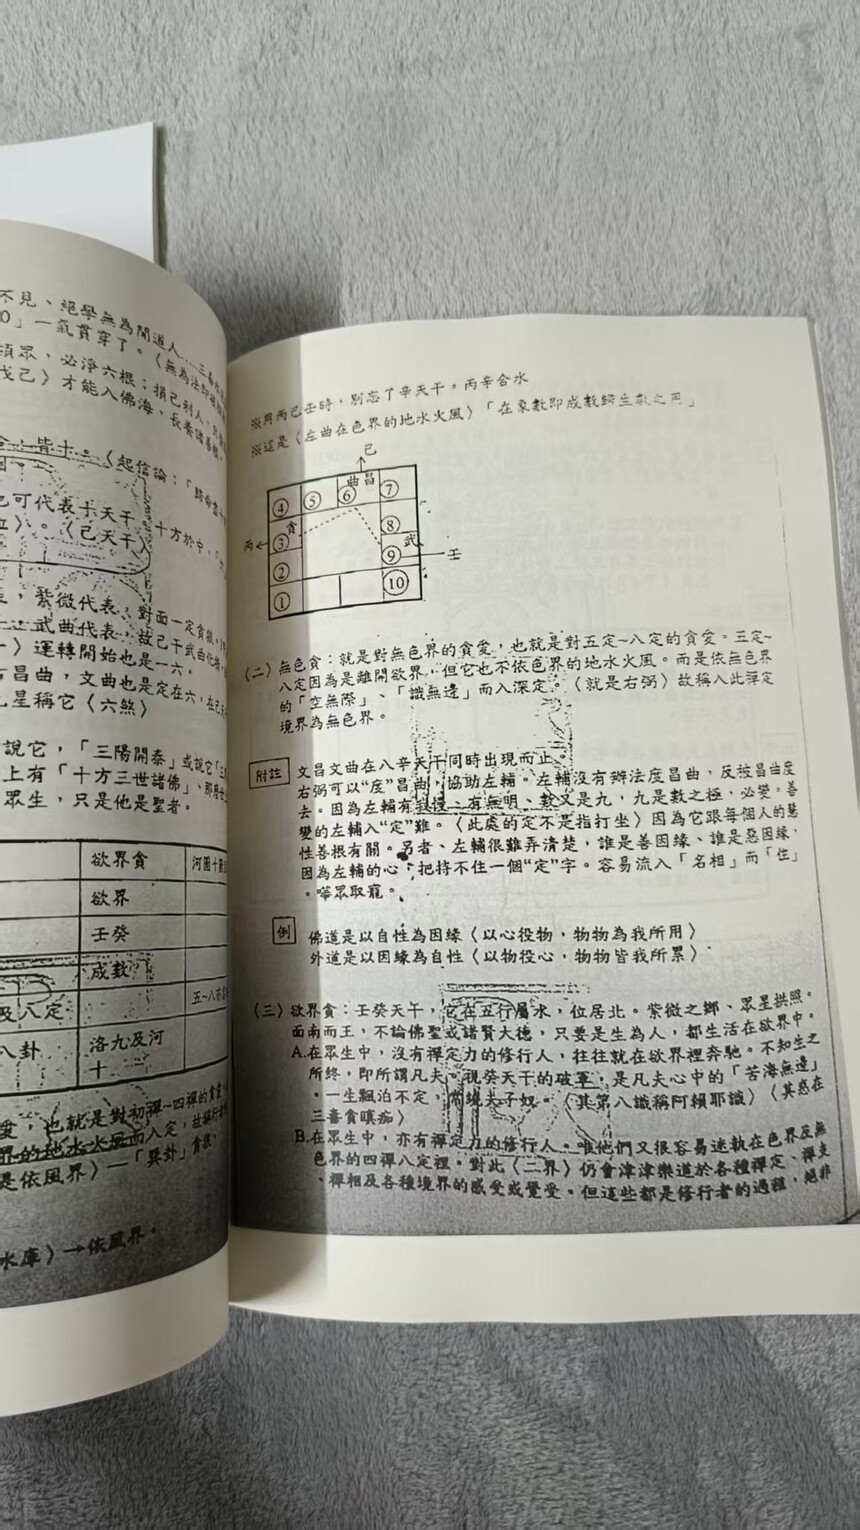 不見、絕學無為閒道人....三
0」一氣貫穿了。〈無為法
須眾，必淨六根；損己利人，
戊己〉才能入佛海、長養諸
皆十。〈起信論：「歸命盡十
也可代表十天干。十方於中，
立〉。〈己天干〉
，紫微代表，對面一定貪狼，
武曲代表，故己干武曲化祿，
一〉運轉開始也是一六。
昌曲，文曲也是定在六，在己
星稱它〈六煞〉
說它，「三陽開泰」或說它「三
上有「十方三世諸佛」、那
眾生，只是他是聖者。
欲界貪
河圖十
欲界
壬癸
成數
及八定
五~八
八卦
洛九及河十
愛，也就是對初禪~四禪的貪愛
界的地水火風而入定，故稱
是依風界〉—「巽卦」
水庫〉→依風界。
※用丙己壬時，別忘了辛天干。丙辛合水
※這是〈左曲在色界的地水火風〉「在象數即成數歸生數之
己
曲昌
④ ⑤ ⑥ ⑦
貪
⑧
丙 ③
武
⑨ 壬
②
① ⑩
(二) 無色貪：就是對無色界的貪愛，也就是對五定~八定的貪愛。三定~
八定因為是離開欲界，但它也不依色界的地水火風。而是依無色界
的「空無際」、「識無邊」而入深定。〈就是右弼〉故稱入此禪定
境界為無色界。
附註 文昌文曲在八辛天干同時出現而正、
右弼可以“度”昌曲，協助左輔。左輔沒有辦法度昌曲，反被昌曲度
去。因為左輔有我慢、有無明、數又是九，九是數之極，必變。善
變的左輔入“定”難。〈此處的定不是指打坐〉因為它跟每個人的慧
性善根有關。另者、左輔很難弄清楚，誰是善因緣、誰是惡因緣，
因為左輔的心，把持不住一個“定”字。容易流入「名相」而「住」
。嘩眾取寵。
例 佛道是以自性為因緣〈以心役物，物物為我所用〉
外道是以因緣為自性〈以物役心，物物皆我所累〉
(三) 欲界貪：壬癸天干，它在五行屬水，位居北。紫微之鄉、眾星拱照。
面南而王，不論佛聖或諸賢大德，只要是生為人，都生活在欲界中。
A.在眾生中，沒有禪定力的修行人，往往就在欲界裡奔馳。不知生之
所終，即所謂凡夫。視癸天干的破軍，是凡夫心中的「苦海無邊」
。一生飄泊不定，隨境夫子奴。〈其第八識稱阿賴耶識〉〈其惑在
三毒貪瞋痴〉
B.在眾生中，亦有禪定力的修行人。唯他們又很容易迷執在色界及無
色界的四禪八定裡。對此〈二界〉仍會津津樂道於各種禪定、禪支
、禪相及各種境界的感受或覺受。但這些都是修行者的過程，絕非